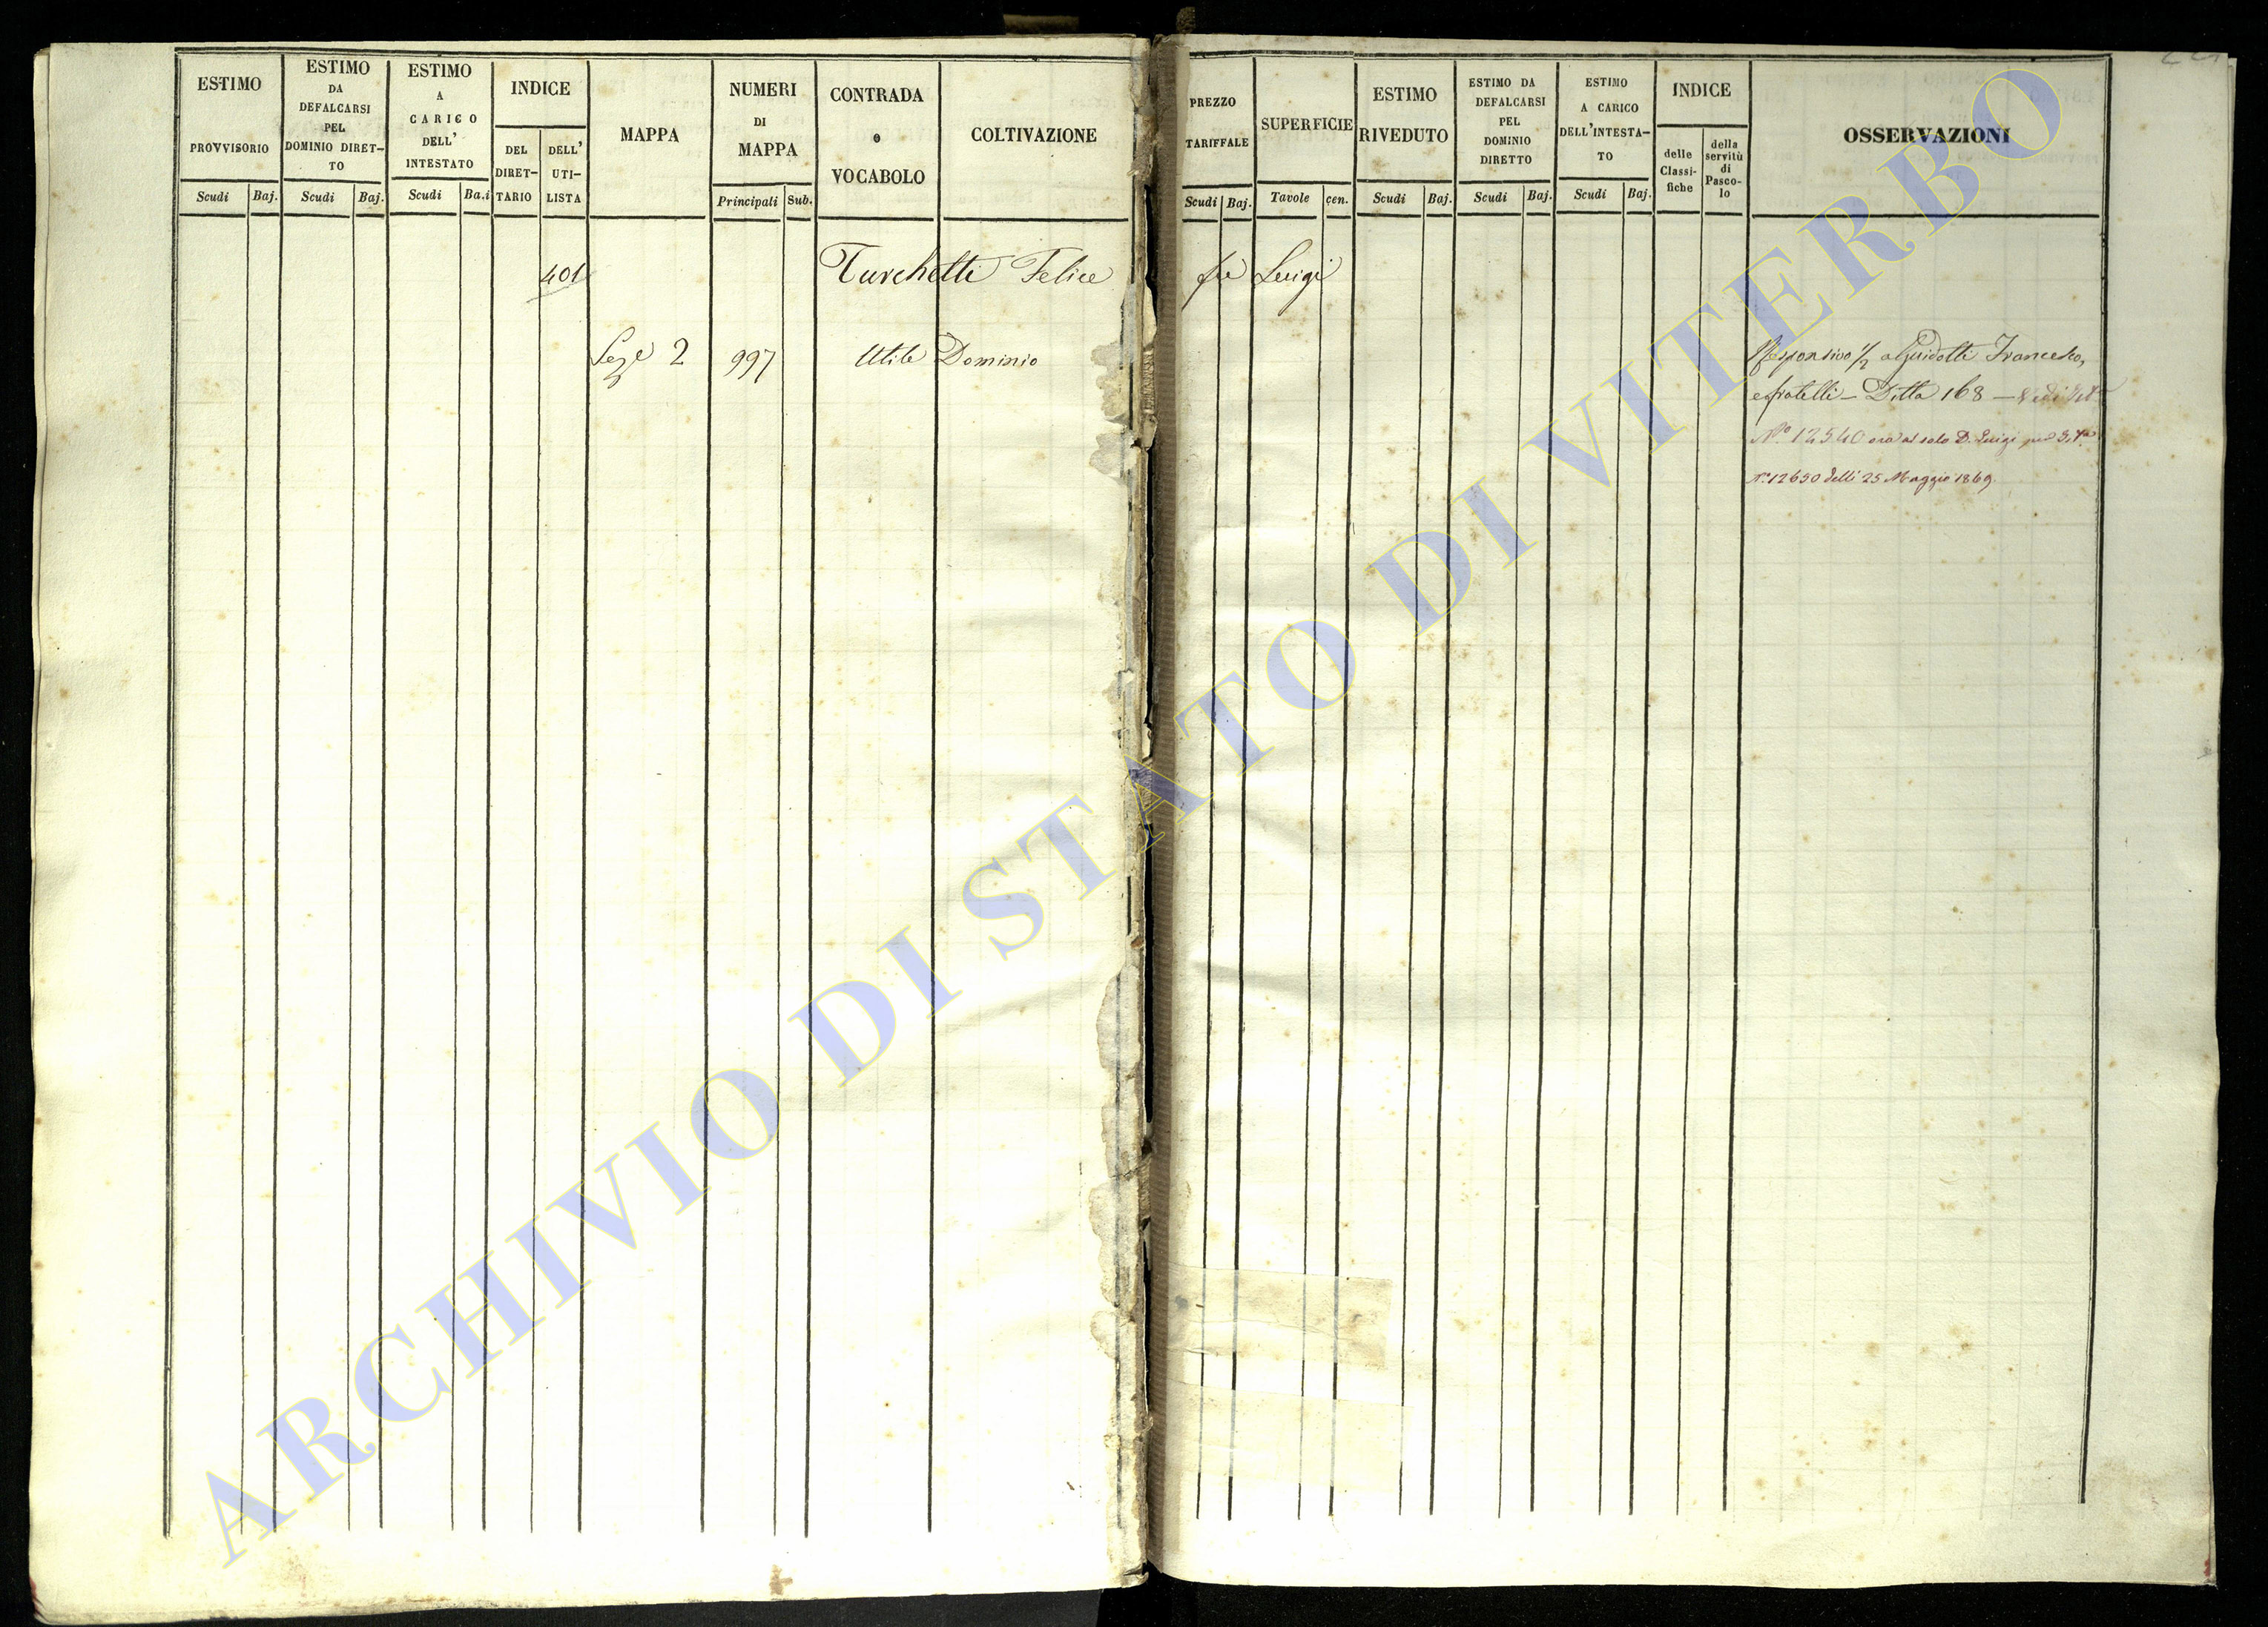 ESTIMO PROVVISORIO
ESTIMO DA DEFALCARSI PEL DOMINIO DIRET-TO
ESTIMO A CARICO DELL' INTESTATO
INDICE
DEL DIRET-TARIO
DELL' UTI-LISTA
MAPPA
NUMERI DI MAPPA
CONTRADA o VOCABOLO
COLTIVAZIONE
Scudi Baj. Scudi Baj. Scudi Ba.i Principali Sub.
PREZZO TARIFFALE
SUPERFICIE
ESTIMO RIVEDUTO
ESTIMO DA DEFALCARSI PEL DOMINIO DIRETTO
ESTIMO A CARICO DELL'INTESTA-TO
INDICE
delle Classi-fiche
della servitù di Pasco-lo
OSSERVAZIONI
Scudi Baj. Tavole cen. Scudi Baj. Scudi Baj. Scudi Baj.
401 Turchetti Felice fu Luigi
Seze 2 997 Utile Dominio
Responsivo 1/2 a Guidotti Francesco,
e fratelli - Ditta 168 - Vedi
No 12540 ora al solo D. Luigi per
No 12650 delli 25 Maggio 1869.
ARCHIVIO DI STATO DI VITERBO